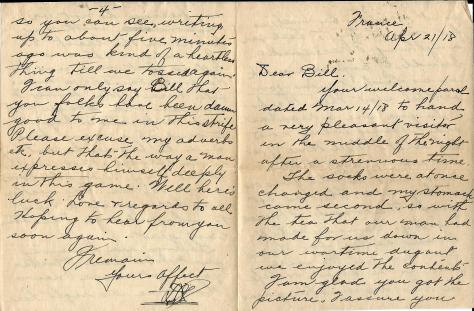 -4-
so you can see, writing
up to about five minutes
ago was kind of a heartless
thing till we tossed again
I can only say Bill that
you folks have been damn
good to me in this strife
Please excuse my adverbs
etc. but that's the way a man
expresses himself deeply
in this game. Well here's
luck. Love & regards to all
Hoping to hear from you
soon again
I remain
Yours Affect
France
Apr 21/18
Dear Bill.
Your welcome parcel
dated Mar 14/18 to hand
a very pleasant visitor
in the middle of the night
after a strenuous time
The socks were at once
changed and my stomach
came second. so with
the tea that our man had
made for us down in
our wartime dugout
we enjoyed the contents
I am glad you got the
picture. I assure you